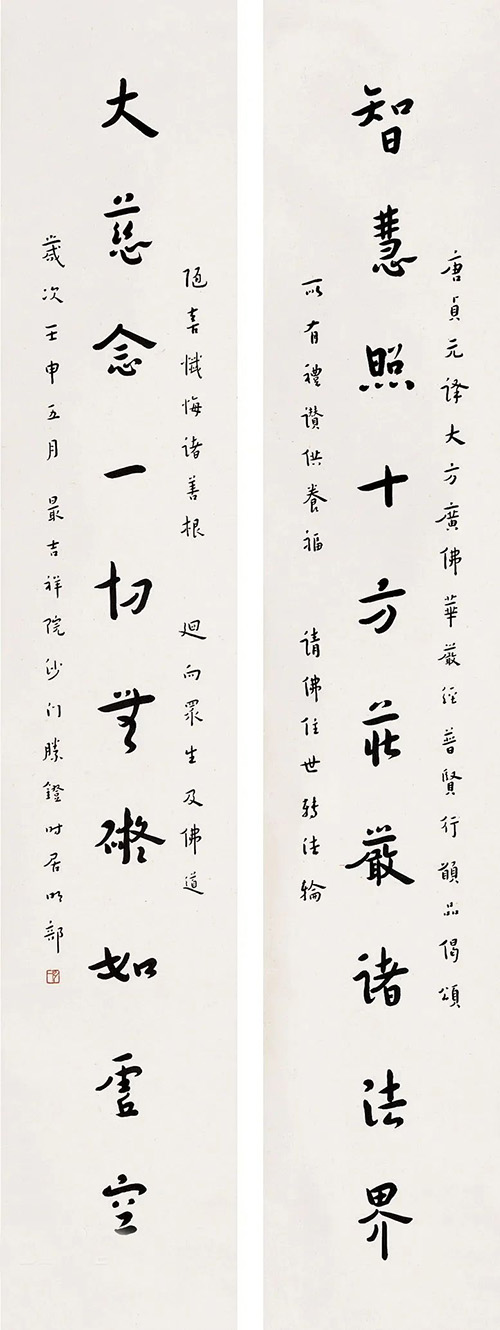 唐貞元译大方廣佛華嚴經普賢行願品偈頌
智慧照十方莊嚴诸法界
所有禮讚供養福 请佛住世转法輪
隨喜懺悔诸善根 迴向眾生及佛道
大慈念一切無礙如虛空
歲次壬申五月 最吉祥院沙门勝鐙时居明部